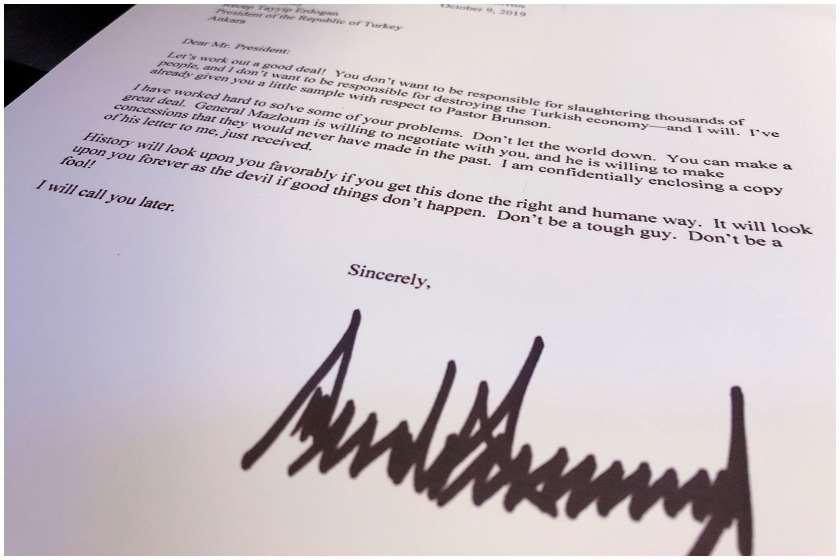 Recep Tayyip Erdogan
October 9, 2019
President of the Republic of Turkey
Ankara
Dear Mr. President:
Let's work out a good deal! You don't want to be responsible for slaughtering thousands of
people, and I don't want to be responsible for destroying the Turkish economy—and I will. I've
already given you a little sample with respect to Pastor Brunson.
I have worked hard to solve some of your problems. Don't let the world down. You can make a
great deal. General Mazloum is willing to negotiate with you, and he is willing to make
concessions that they would never have made in the past. I am confidentially enclosing a copy
of his letter to me, just received.
History will look upon you favorably if you get this done the right and humane way. It will look
upon you forever as the devil if good things don't happen. Don't be a tough guy. Don't be a
fool!
I will call you later.
Sincerely,